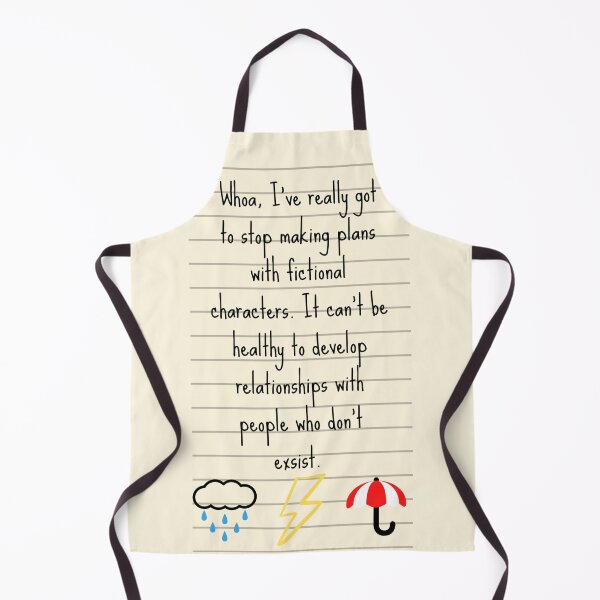 Whoa, I've really got
to stop making plans
with fictional
characters. It can't be
healthy to develop
relationships with
people who don't
exsist.